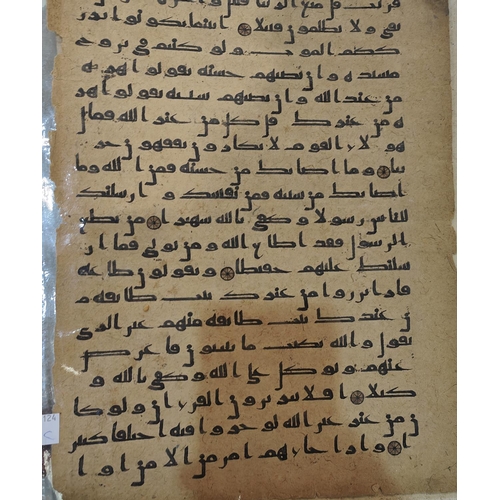 قريب قل متع الدنيا قليل و
تقى ولا تظلمون فتيلا اينما تكونوا يدر
ككم الموت ولو كنتم في بروج
مشيدة وان تصبهم حسنة يقولوا هذه
من عند الله وان تصبهم سيئة يقولوا هذ
ه من عندك قل كل من عند الله فمال
هؤلاء القوم لا يكادون يفقهون حد
يثا وما اصابك من حسنة فمن الله وما
اصابك من سيئة فمن نفسك وارسلنك
للناس رسولا وكفى بالله شهيدا من يطع
الرسول فقد اطاع الله ومن تولى فما ار
سلنك عليهم حفيظا ويقولون طاعة
فاذا برزوا من عندك بيت طائفة م
ن عندك بيت طائفة منهم غير الذي
تقول والله يكتب ما يبيتون فاعرض
عنهم وتوكل على الله وكفى بالله و
كيلا افلا يتدبرون القرءان ولو كا
ن من عند غير الله لوجدوا فيه اختلفا كثير
ا واذا جاءهم امر من الامن او ا